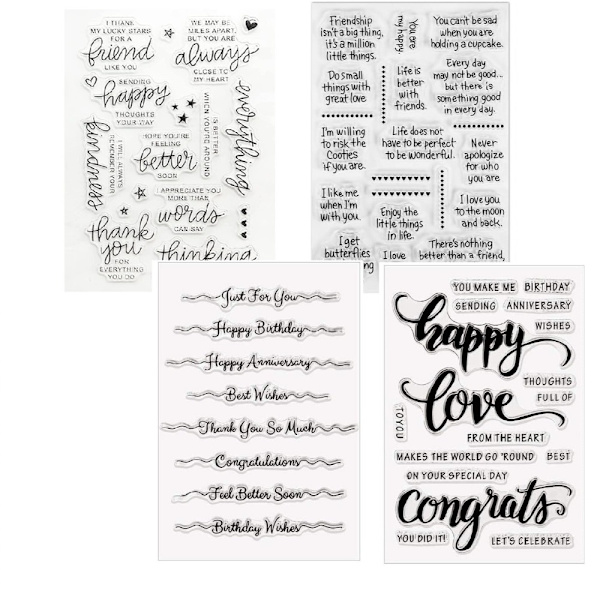 I THANK
MY LUCKY STARS
FOR A
friend
LIKE YOU
WE MAY BE
MILES APART,
BUT YOU ARE
always
CLOSE TO
MY HEART
SENDING
happy
THOUGHTS
YOUR WAY
everything
IS BETTER
WHEN YOU'RE AROUND
kindness
I WILL ALWAYS
REMEMBER YOUR
HOPE YOU'RE
FEELING
better
SOON
I APPRECIATE YOU
MORE THAN
words
CAN SAY
thank
you
FOR
EVERYTHING
YOU DO
thinking
Friendship
isn't a big thing,
it's a million
little things.
You are
my happy.
You can't be sad
when you are
holding a cupcake.
Do small
things with
great love
Life is
better
with
friends.
Every day
may not be good...
but there is
something good
in every day.
I'm willing
to risk the
Cooties
if you are.
Life does not
have to be perfect
to be wonderful.
Never
apologize
for who
you are
I like me
when I'm
with you.
Enjoy the
little things
in life.
I love you
to the moon
and back.
I get
butterflies
I love
There's nothing
better than a friend,
Just For You
Happy Birthday
Happy Anniversary
Best Wishes
Thank You So Much
Congratulations
Feel Better Soon
Birthday Wishes
YOU MAKE ME BIRTHDAY
SENDING ANNIVERSARY
happy WISHES
THOUGHTS
love FULL OF
TO YOU
FROM THE HEART
MAKES THE WORLD GO 'ROUND BEST
ON YOUR SPECIAL DAY
congrats
YOU DID IT! LET'S CELEBRATE